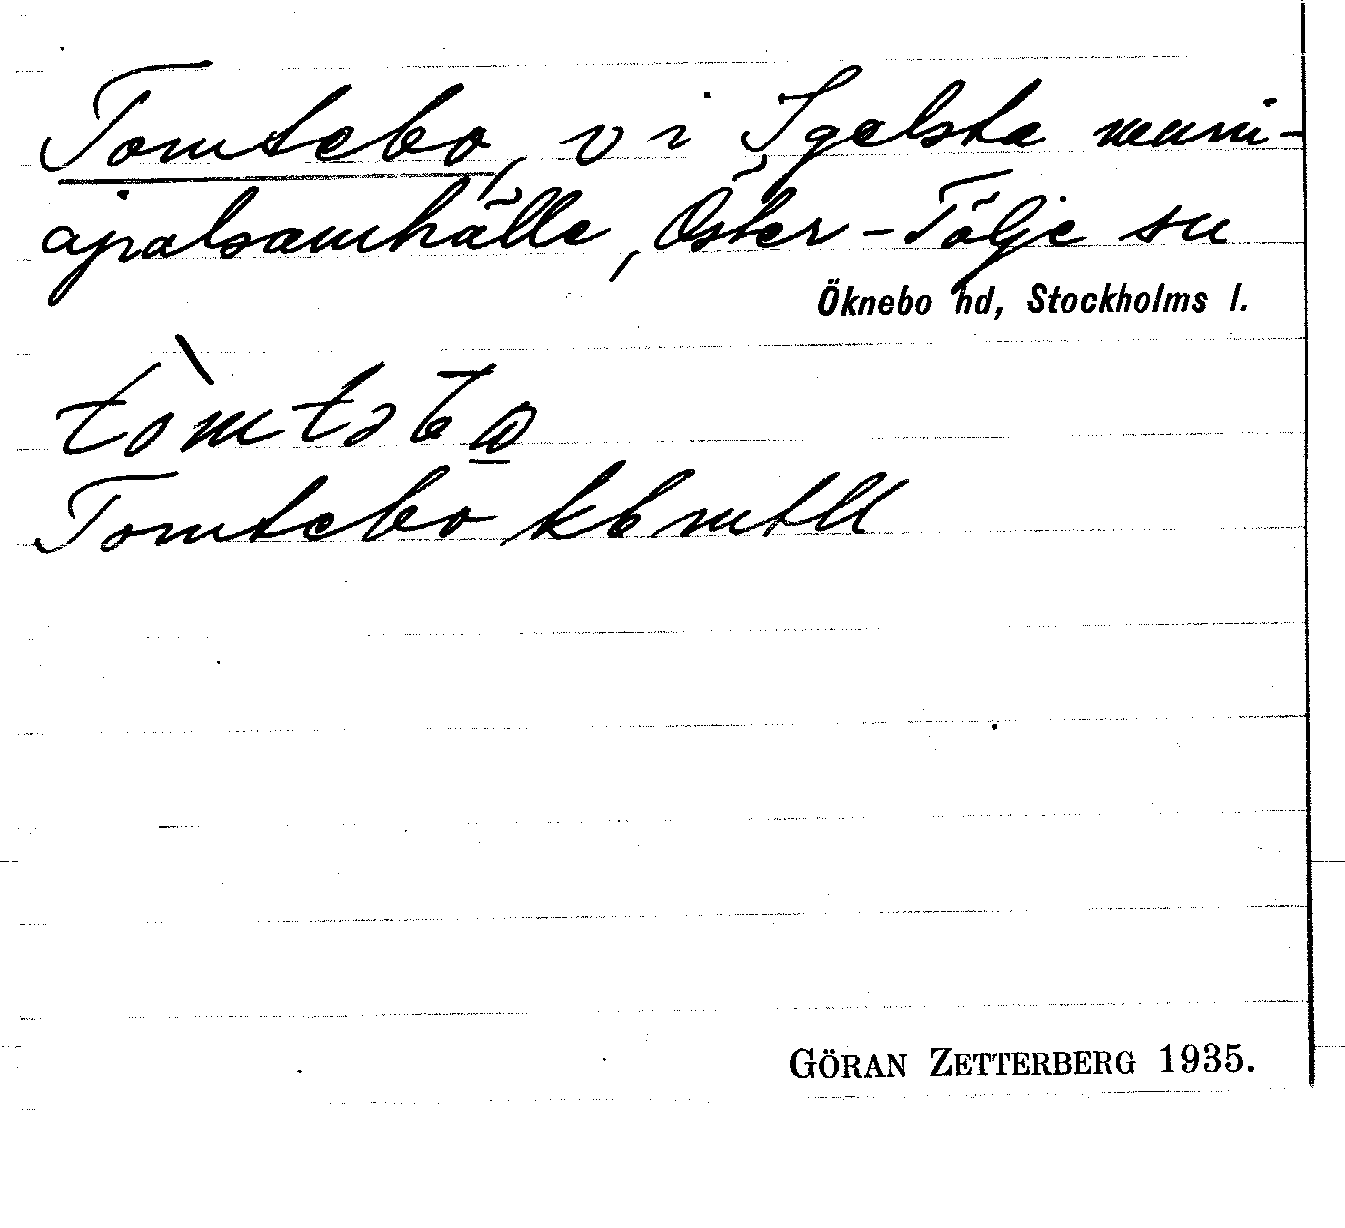 Tomtebo, v i Igelsta muni-
cipalsamhälle, Öster-Tälje sn
Öknebo hd, Stockholms l.
tòmtəbo̲
Tomtebo kb mtll
GÖRAN ZETTERBERG 1935.